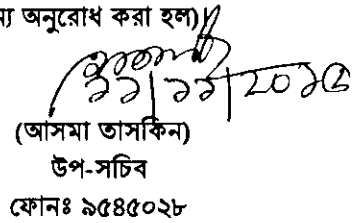 ন্য অনুরোধ করা হল)
(আসমা তাসকিন)
উপ-সচিব
ফোনঃ ৯৫৪৫০২৮